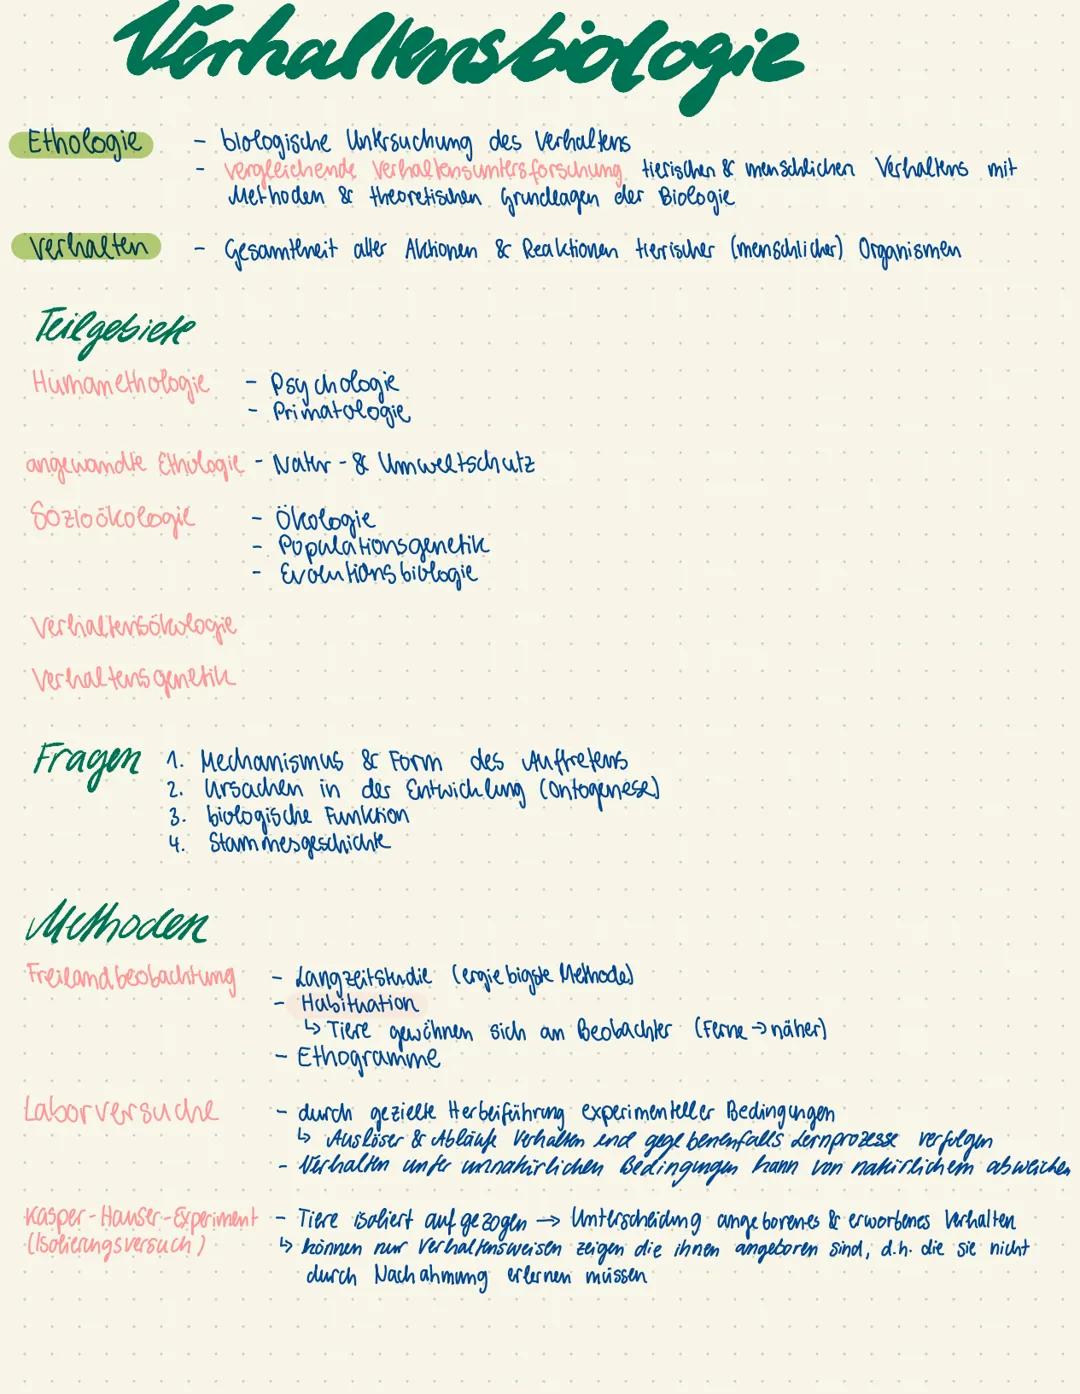 Verhaltensbiologie
Ethologie - biologische Untersuchung des Verhaltens
- vergleichende Verhaltensuntersforschung tierischen & menschlichen Verhaltens mit
Methoden & theoretischen Grundlagen der Biologie
Verhalten - Gesamtheit aller Aktionen & Reaktionen tierischer (menschlicher) Organismen
Teilgebiete
Humanethologie - Psychologie
- Primatologie
angewandte Ethologie - Natur- & Umweltschutz
Sozioökologie - Ökologie
- Populationsgenetik
- Evolutionsbiologie
Verhaltensökologie
Verhaltensgenetik
Fragen 1. Mechanismus & Form des Auftretens
2. Ursachen in der Entwicklung (Ontogenese)
3. biologische Funktion
4. Stammesgeschichte
Methoden
Freilandbeobachtung - Langzeitstudie (ergiebigste Methode)
- Habituation
↳ Tiere gewöhnen sich an Beobachter (Ferne → näher)
- Ethogramme
Laborversuche - durch gezielte Herbeiführung experimenteller Bedingungen
↳ Auslöser & Abläufe Verhalten und gegebenenfalls Lernprozesse verfolgen
- Verhalten unter unnatürlichen Bedingungen kann von natürlichem abweichen
Kasper-Hauser-Experiment - Tiere isoliert aufgezogen → Unterscheidung angeborenes & erworbenes Verhalten
(Isolierungsversuch) ↳ können nur Verhaltensweisen zeigen die ihnen angeboren sind, d.h. die sie nicht
durch Nachahmung erlernen müssen